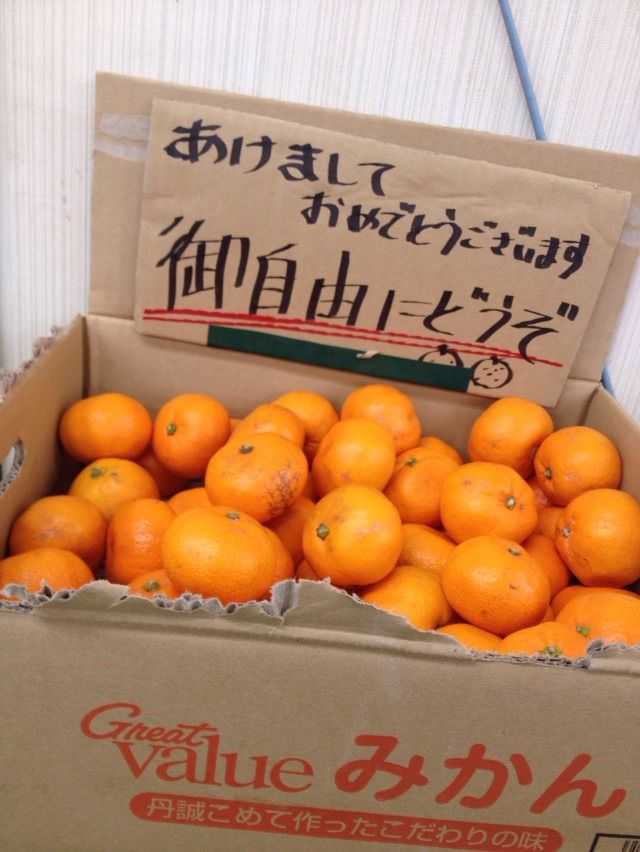 あけまして
おめでとうございます
御自由にどうぞ
Great
Value みかん
丹誠こめて作ったこだわりの味